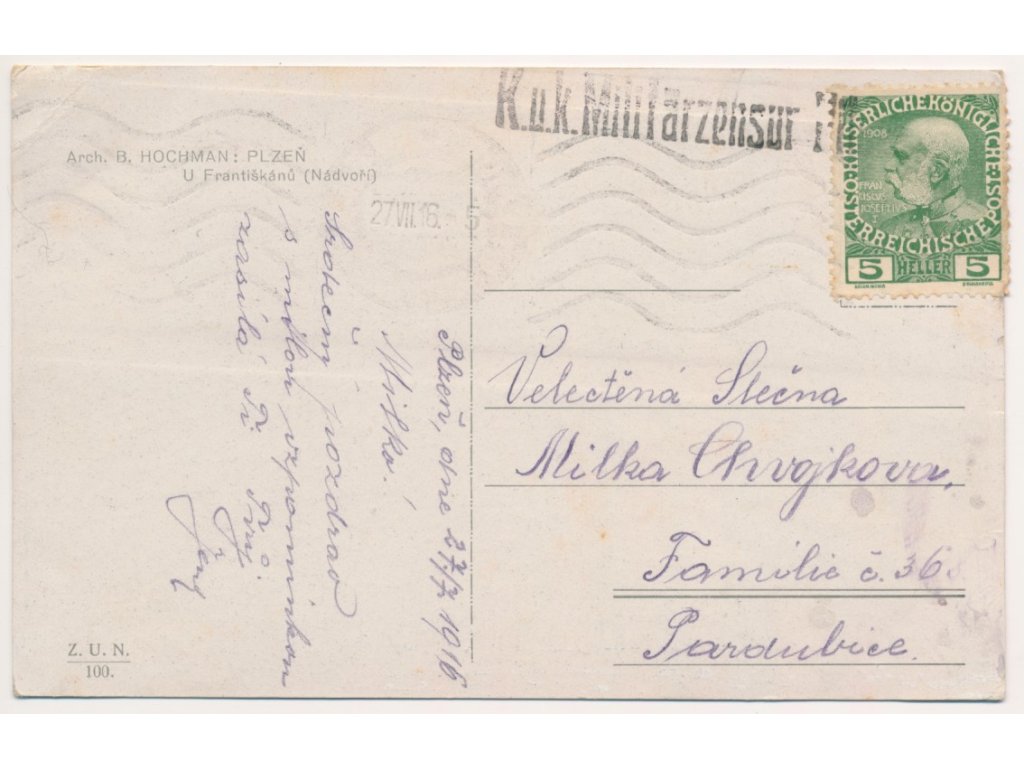 Arch. B. HOCHMAN: PLZEŇ
U Františkánů (Nádvoří)
K.u.k. Militärzensur
27.VII.16. - 5
KAISERLICHE KÖNIGLICHE ÖSTERREICHISCHE POST
1908
FRAN
CISCVS
IOSEPHVS
I
5 HELLER 5
Plzeň, dne 27/7 1916
Milko!
Srdečný pozdrav
s milou vzpomínkou
zasílá Ti Tvůj
Velectěná Slečna
Milka Chvojkova,
Familie č. 36
Pardubice.
Z. U. N.
100.